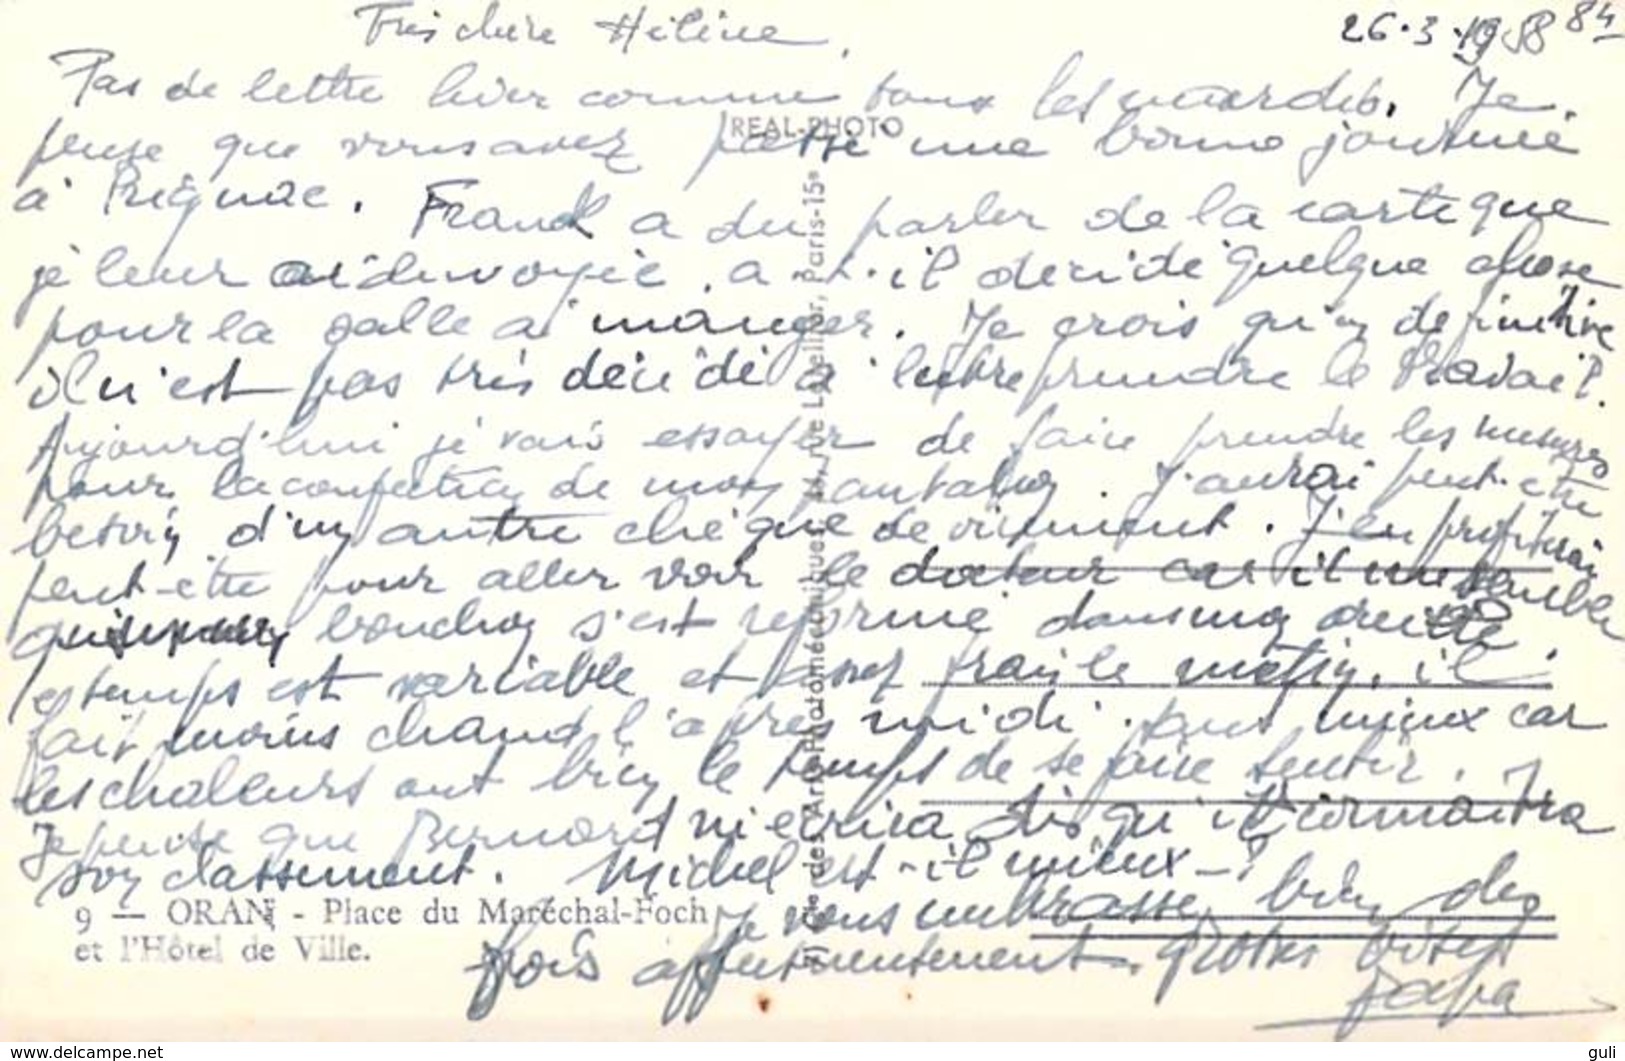 Très chère Hélène, 26.3.1958 84
Pas de lettre hier comme tous les mardis. Je
pense que vous avez passé une bonne journée
à Prignac. Franck a du parler de la carte que
je leur ai envoyée. a-t-il décidé quelque chose
pour la salle à manger. Je crois qu'en définitive
il n'est pas très décidé à entreprendre le travail.
Aujourd'hui je vais essayer de faire prendre les mesures
pour la confection de mon pantalon. J'aurai peut-être
besoin d'un autre chèque de virement. J'en profiterai
peut-être pour aller voir le docteur car il me semble
qu'un bouchon s'est reformé dans mon oreille
Le temps est variable et assez frais le matin. il
fait moins chaud l'après midi. tant mieux car
les chaleurs ont bien le temps de se faire sentir.
Je pense que Bernard m'écrira dès qu'il connaitra
son classement. Michel est-il mieux - ?
Je vous embrasse bien des
fois affectueusement. grosses bises
Papa
REAL-PHOTO
Cie des Arts Photomécaniques, rue Paris-15e
9 — ORAN - Place du Maréchal-Foch
et l'Hôtel de Ville.
www.delcampe.net
guli